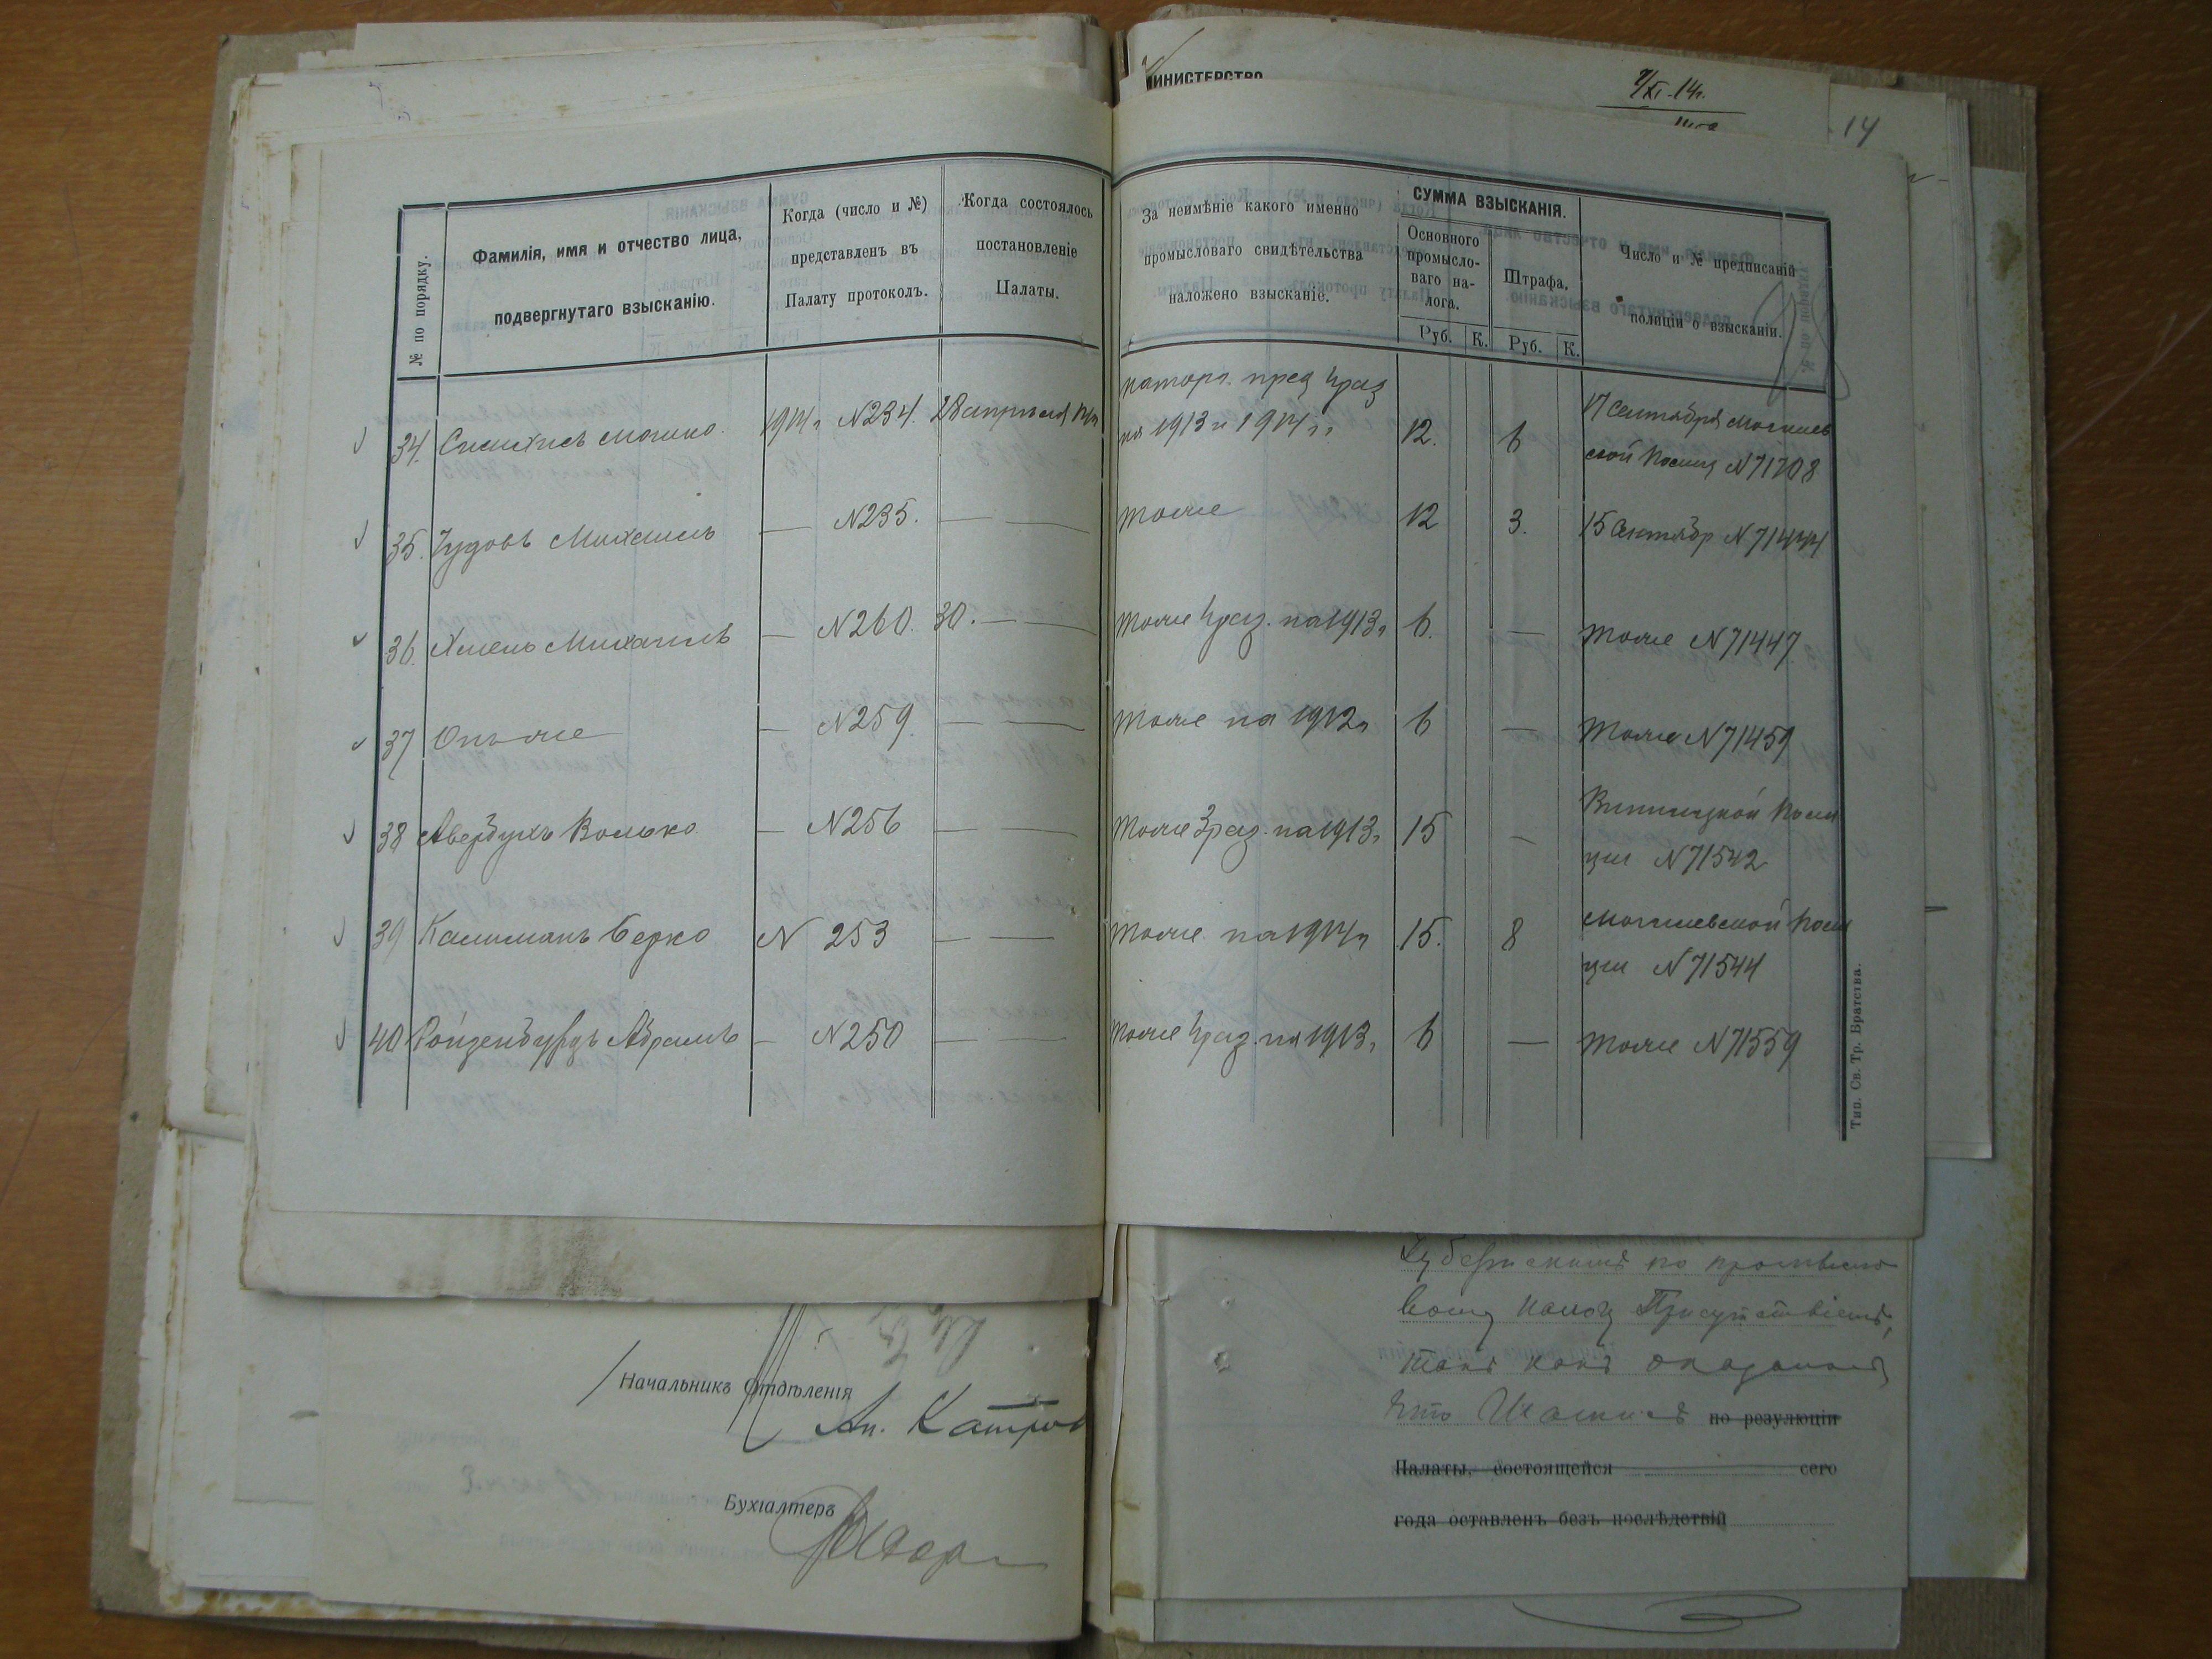 МИНИСТЕРСТВО
7/XI-14г.
14
№ по порядку.
Фамилія, имя и отчество лица,
подвергнутаго взысканію.
Когда (число и №)
представленъ въ
Палату протоколъ.
Когда состоялось
постановленіе
Палаты.
За неимѣніе какого именно
промысловаго свидѣтельства
наложено взысканіе.
СУММА ВЗЫСКАНІЯ.
Основного
промысло-
ваго на-
лога.
Штрафа.
Руб. К. Руб. К.
Число и № предписаній
полиціи о взысканіи.
34. Мошко 1914г. N234. 28 апрѣля
пред 4 раз
на 1913 и 1914 г.г. 12. 6
17 Сентября Могилев
ской Полиц N71708
35. Чудовъ Михаилъ — N235. — — тоже 12 3. 15 Сентябр N71444
36. Хмель Михаилъ — N260. 30. — — тоже 4 раз. на 1913г 6. — тоже N71447
37 Онъ же — N259. — — тоже на 1912г 6 — тоже N71459
38 Авербухъ Волько — N256 — — тоже 3 раз. на 1913г 15 — Винницкой Поли
ціи N71542
39 Калиманъ Берко N 253 — — тоже на 1914г 15. 8 Могилевской Поли
ціи N71544
40 Ройзенбурдъ Абрамъ — N250 — — тоже 4 раз. на 1913г 6 — тоже N71559
Тип. Св. Тр. Братства.
Начальникъ Отдѣленія
Бухгалтеръ
Губернскимъ по промысло
вому налогу Присутствіемъ,
такъ какъ оказалось
что по резулюціи
Палаты, состоящейся сего
года оставленъ безъ послѣдствій